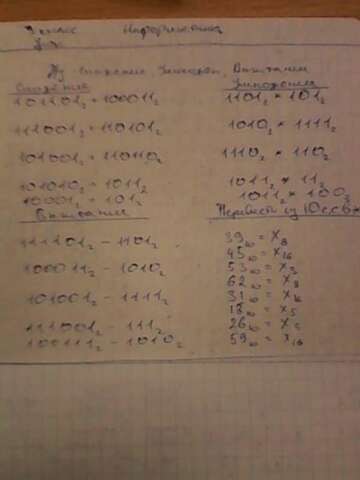 9 класс Информатика
Д/з
Ду Сложение Умножен. Вычитание
Сложение
101101₂ + 100011₂
111001₂ + 110101₂
101001₂ + 110110₂
101010₂ + 1011₂
10001₂ + 101₂
Вычитание
111101₂ - 1101₂
100011₂ - 1010₂
101001₂ - 1111₂
111001₂ - 111₂
100111₂ - 1010₂
Умножение
1101₂ * 101₂
1010₂ * 1111₂
1110₂ * 110₂
1011₂ * 11₂
1011₂ * 100₂
Перевести из 10 с.с в
39₁₀ = X₈
45₁₀ = X₁₆
53₁₀ = X₅
62₁₀ = X₈
31₁₀ = X₁₆
18₁₀ = X₅
26₁₀ = X₅
59₁₀ = X₁₆